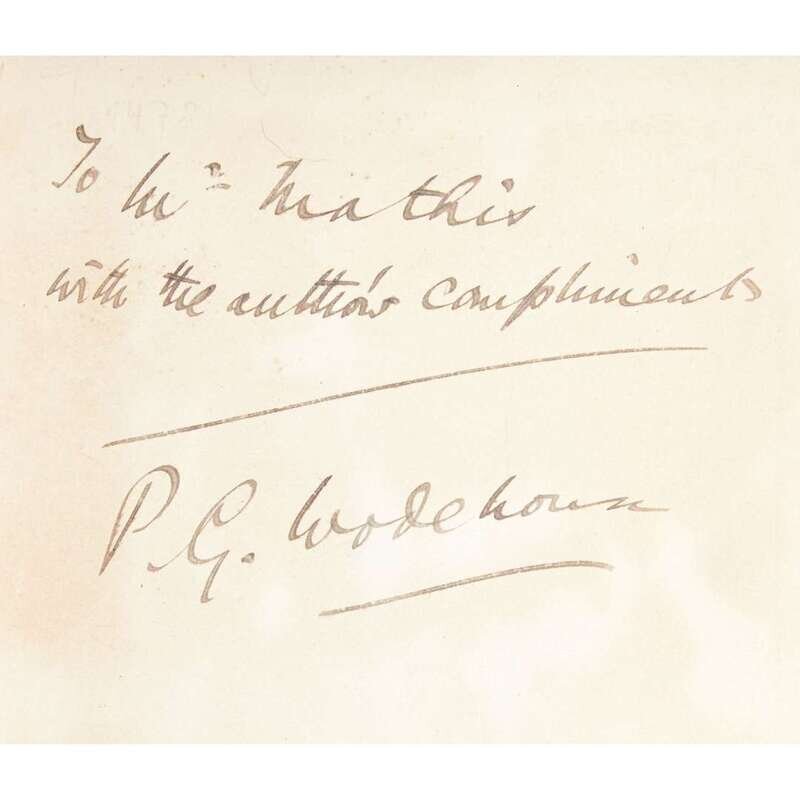 To Mr Mathis
with the author's compliments
P. G. Wodehouse